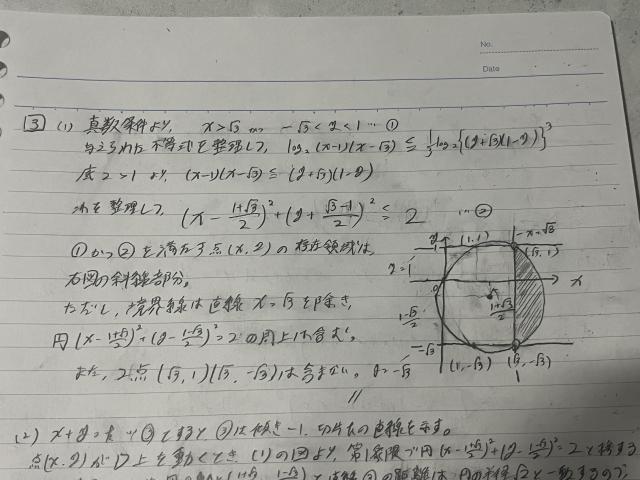 No.
Date
3 (1) 真数条件より, x>√3 かつ -√3<y<1 …①
与えられた不等式を整理して, log₂(x-1)(x-√3) ≦ 1/3 log₂{(y+√3)(1-y)}³
底2>1より, (x-1)(x-√3) ≦ (y+√3)(1-y)
これを整理して, (x - (1+√3)/2)² + (y + (√3-1)/2)² ≦ 2 …②
①かつ②を満たす点(x,y)の存在領域は,
右図の斜線部分。
ただし, 境界線は直線 x=√3 を除き,
円(x-(1+√3)/2)²+(y-(1-√3)/2)²=2の周上は含む。
また, 2点(√3,1)(√3,-√3)は含まない。
y
1
(1,1)
x=√3
(√3,1)
y=1
x
0
(1+√3)/2
(1-√3)/2
-√3
(1,-√3)
(√3,-√3)
y=-√3
(2) x+y=k …③とすると, ③は傾き-1, 切片kの直線を示す。
点(x,y)がD上を動くとき, (1)の図より, 第1象限で円(x-(1+√3)/2)²+(y-(1-√3)/2)²=2と接する
((1+√3)/2, (1-√3)/2)と直線③の距離は, 円の半径√2と一致するので,